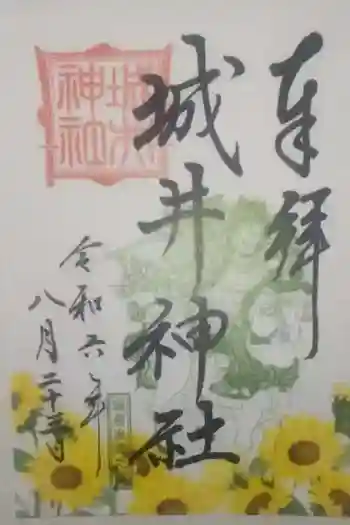 奉拝
城井神社
令和六年
八月二十三日
城井神社